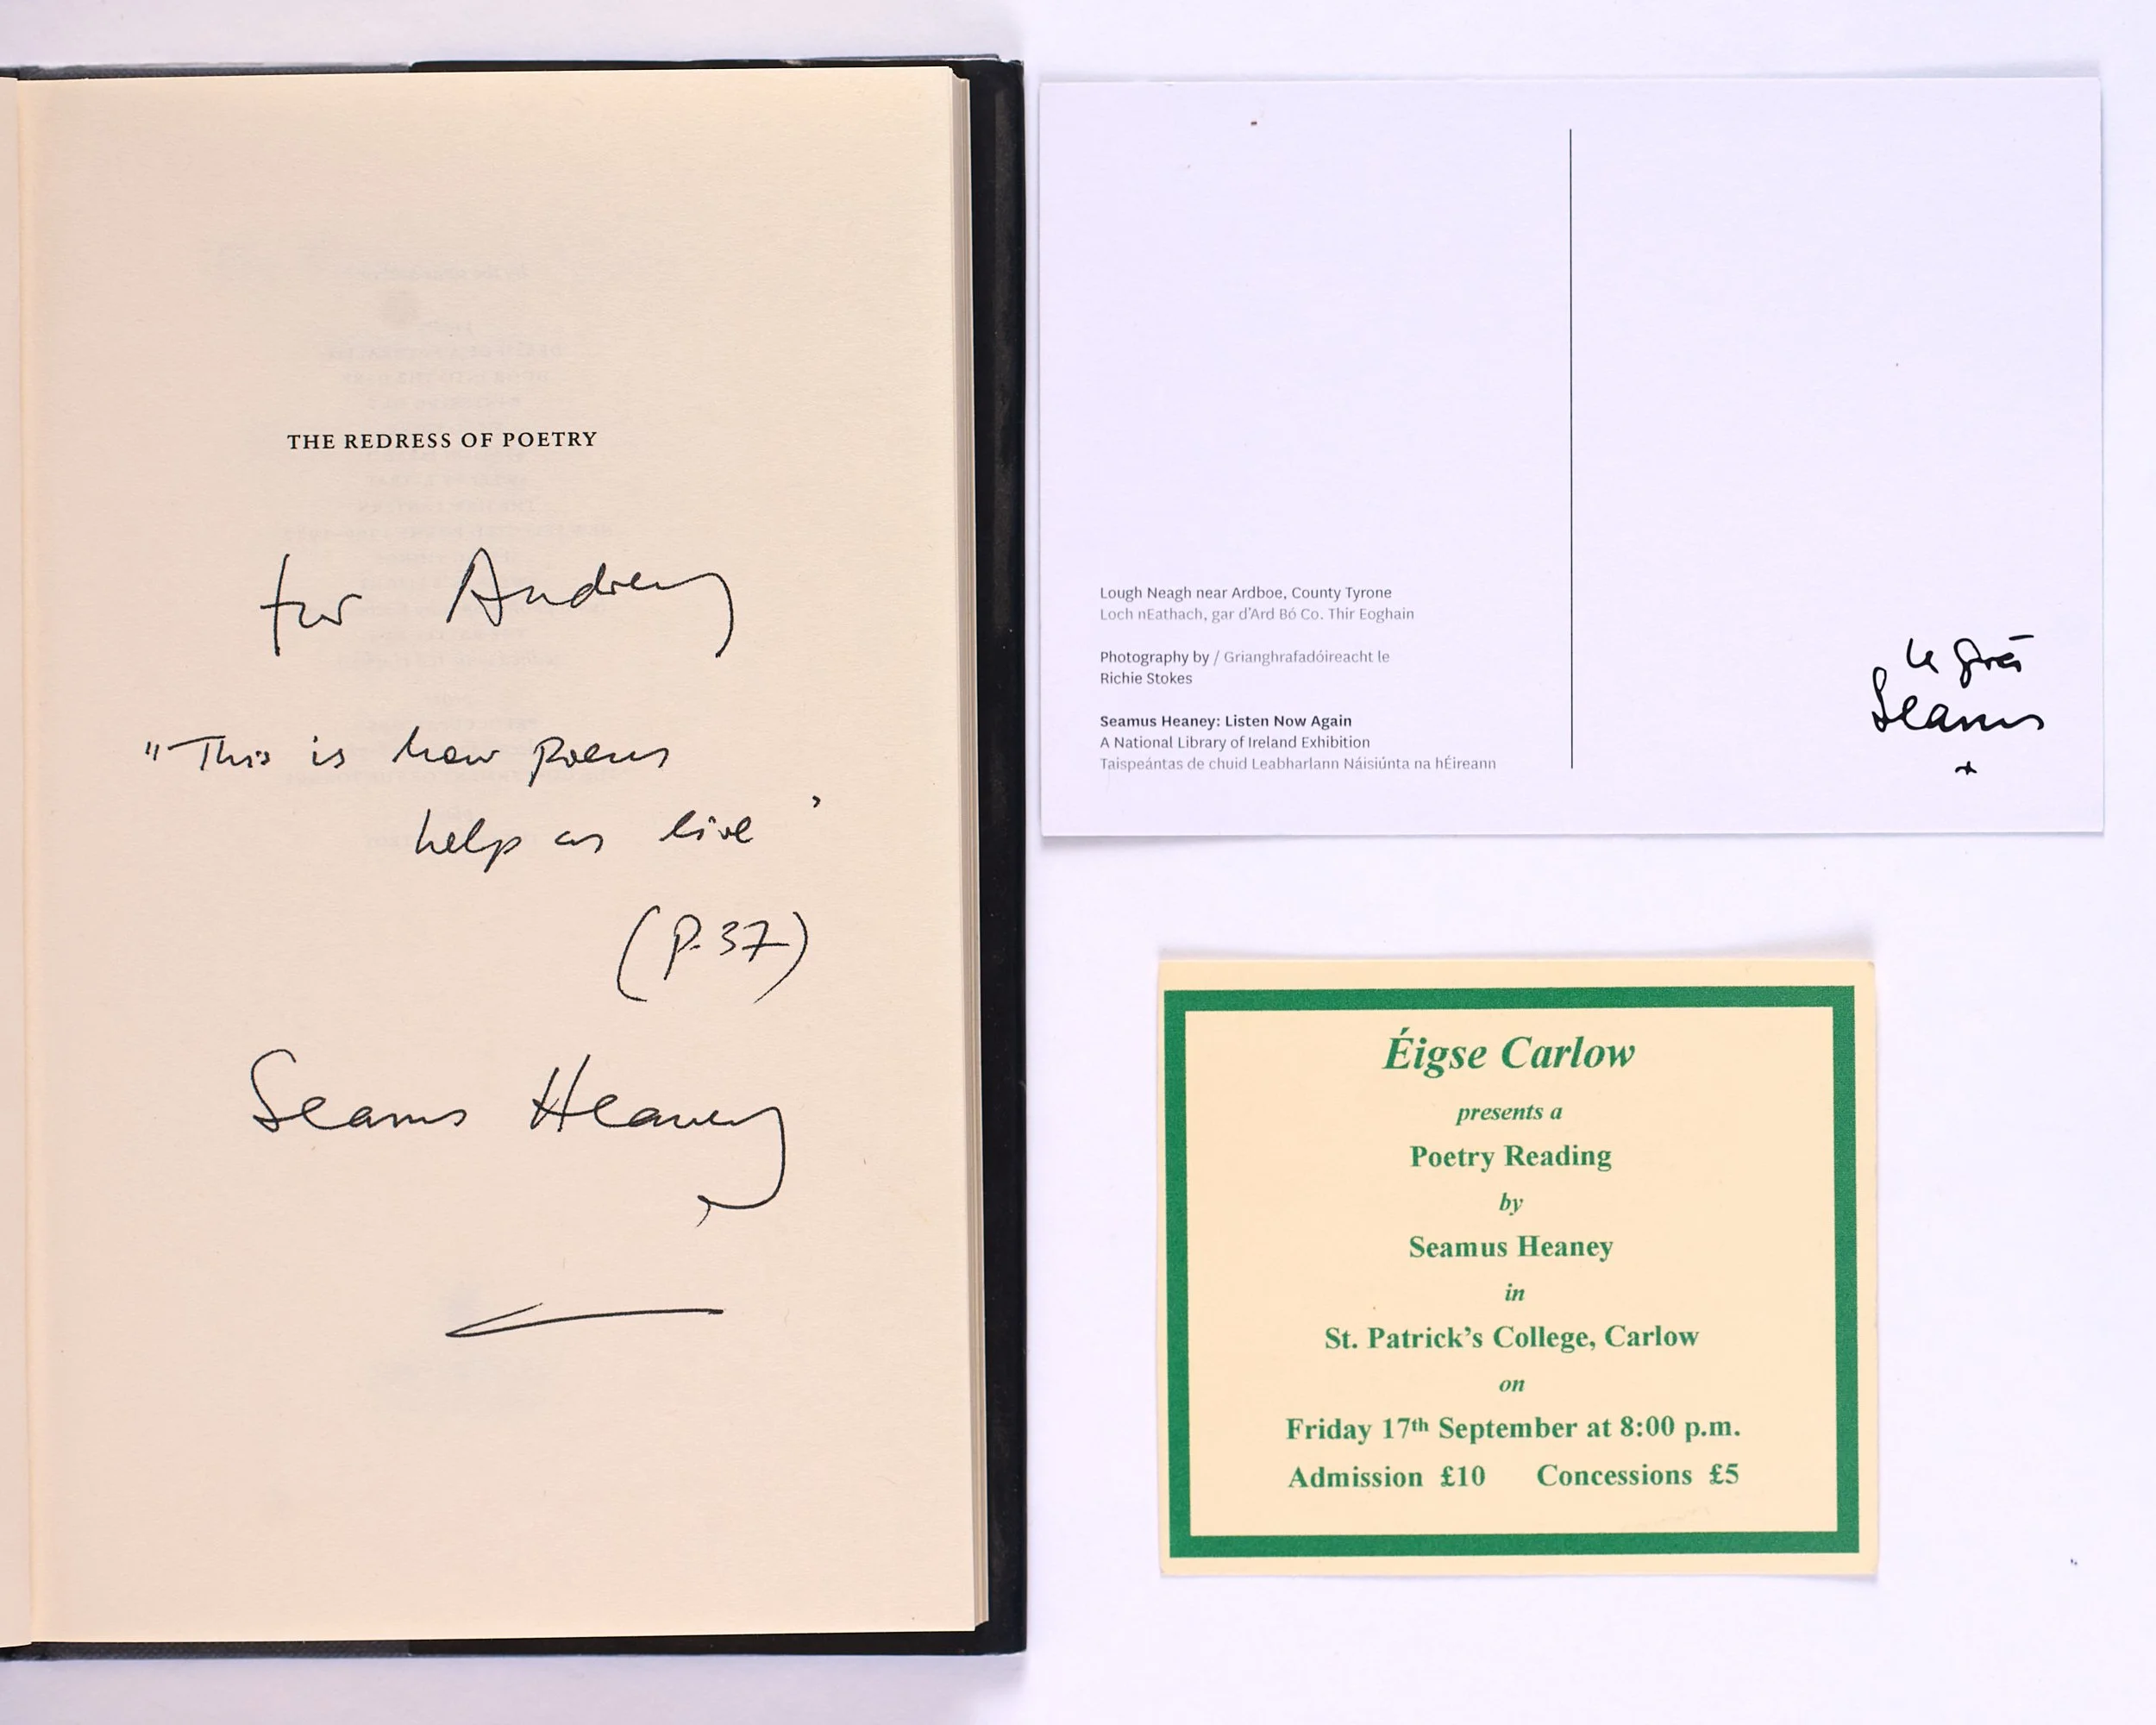 THE REDRESS OF POETRY
for Audrey
"This is how poems
help us live"
(p.37)
Seamus Heaney
Lough Neagh near Ardboe, County Tyrone
Loch nEathach, gar d'Ard Bó Co. Thir Eoghain
Photography by / Grianghrafadóireacht le
Richie Stokes
Seamus Heaney: Listen Now Again
A National Library of Ireland Exhibition
Taispeántas de chuid Leabharlann Náisiúnta na hÉireann
le grá
Seamus
Éigse Carlow
presents a
Poetry Reading
by
Seamus Heaney
in
St. Patrick's College, Carlow
on
Friday 17th September at 8:00 p.m.
Admission £10 Concessions £5